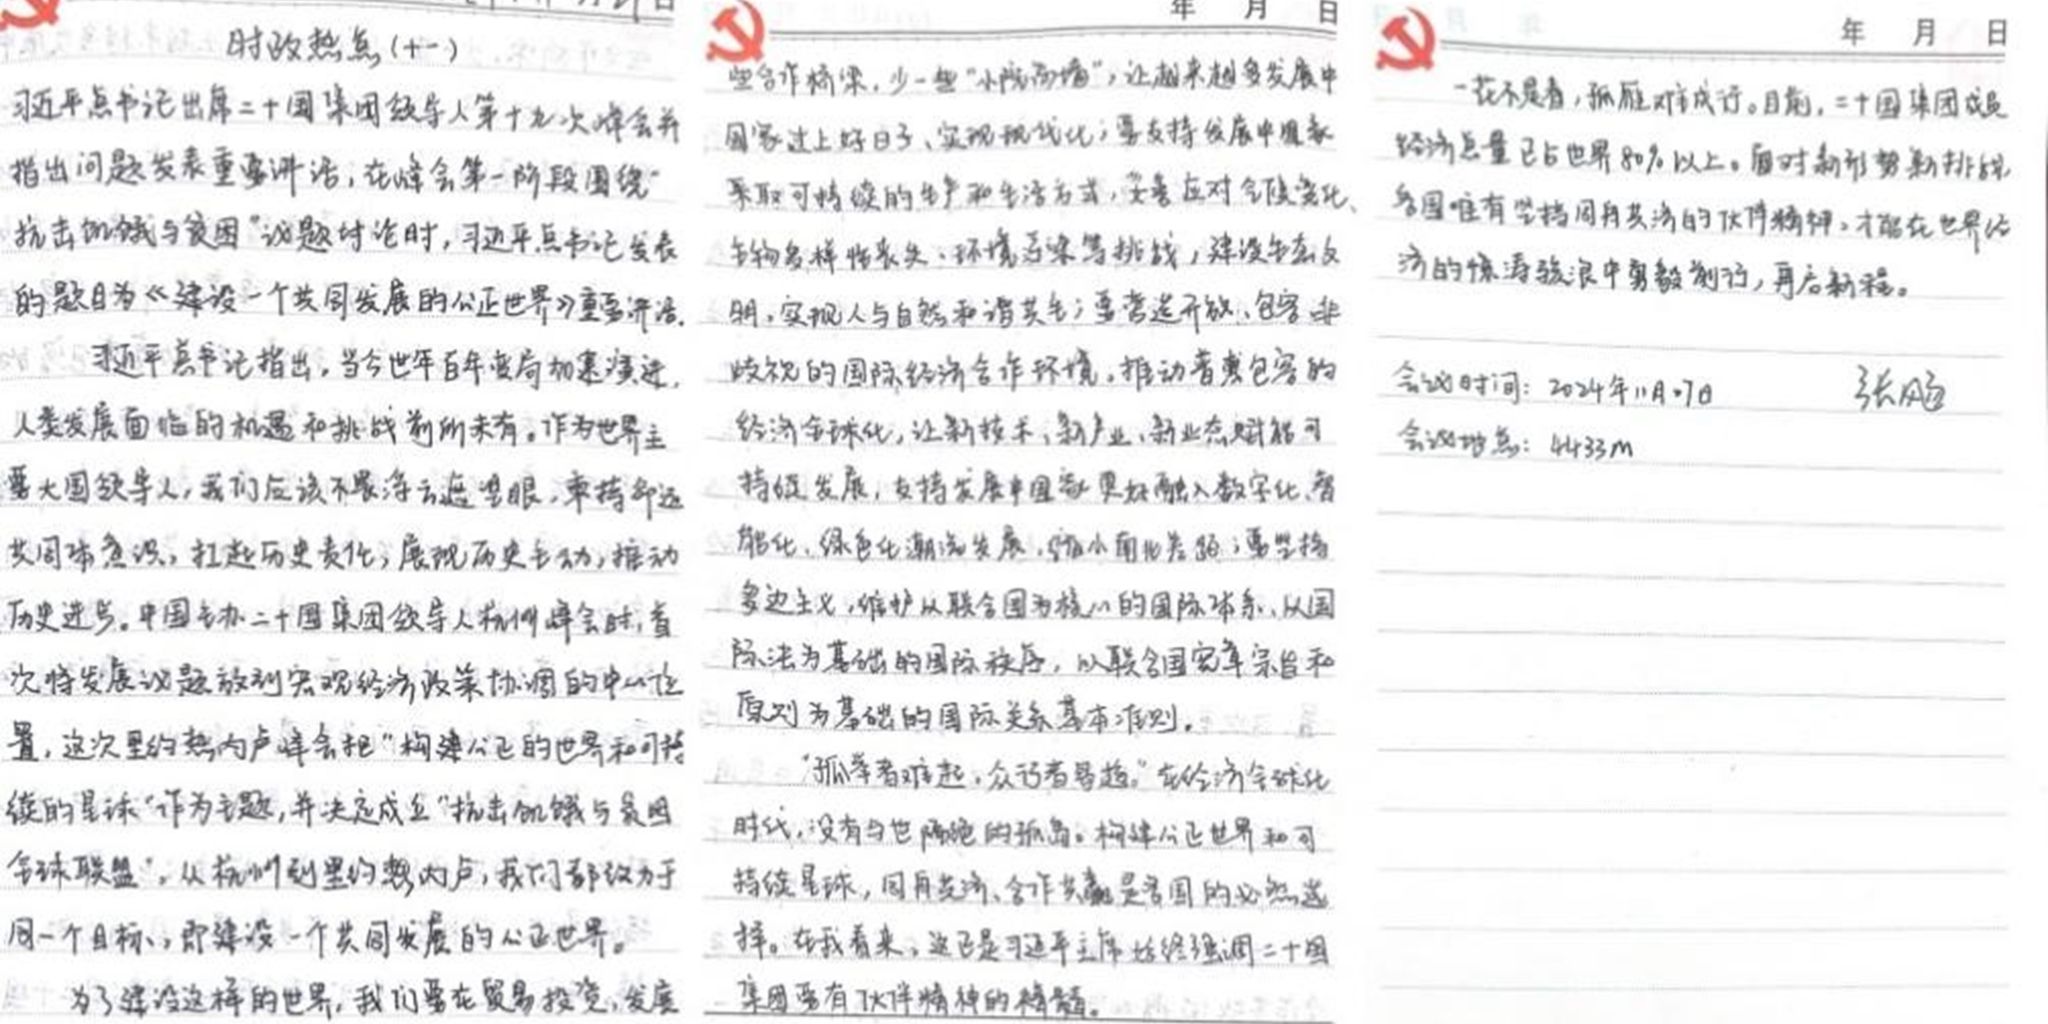 年 月 日
时政热点(十一)
习近平总书记出席二十国集团领导人第十九次峰会并
指出问题发表重要讲话,在峰会第一阶段围绕"
抗击饥饿与贫困"议题讨论时,习近平总书记发表
的题目为《建设一个共同发展的公正世界》重要讲话.
习近平总书记指出,当今世年百年变局加速演进,
人类发展面临的机遇和挑战前所未有。作为世界主
要大国领导人,我们应该不畏浮云遮望眼,秉持命运
共同体意识,扛起历史责任,展现历史主动,推动
历史进步。中国主办二十国集团领导人杭州峰会时,首
次将发展议题放到宏观经济政策协调的中心位
置,这次里约热内卢峰会把"构建公正的世界和可持
续的星球"作为主题,并决定成立"抗击饥饿与贫困
全球联盟"。从杭州到里约热内卢,我们都致力于
同一个目标,即建设一个共同发展的公正世界。
为了建设这样的世界,我们要在贸易投资,发展
年 月 日
些合作桥梁,少一些"小院高墙",让越来越多发展中
国家过上好日子、实现现代化;要支持发展中国家
采取可持续的生产和生活方式,妥善应对气候变化、
生物多样性丧失、环境污染等挑战,建设生态文
明,实现人与自然和谐共生;要营造开放、包容、非
歧视的国际经济合作环境,推动普惠包容的
经济全球化,让新技术、新产业、新业态赋能可
持续发展,支持发展中国家更好融入数字化、智
能化、绿色化潮流发展,缩小南北差距;要坚持
多边主义,维护以联合国为核心的国际体系、以国
际法为基础的国际秩序,以联合国宪章宗旨和
原则为基础的国际关系基本准则。
"孤举者难起,众行者易趋。"在经济全球化
时代,没有与世隔绝的孤岛。构建公正世界和可
持续星球,同舟共济、合作共赢是各国的必然选
择。在我看来,这正是习近平主席始终强调二十国
集团要有伙伴精神的精髓。
年 月 日
一花不是春,孤雁难成行。目前,二十国集团成员
经济总量已占世界80%以上。面对新形势新挑战,
各国唯有坚持同舟共济的伙伴精神,才能在世界经
济的惊涛骇浪中勇毅前行,再启新程。
会议时间:2024年11月07日
会议地点:4433m